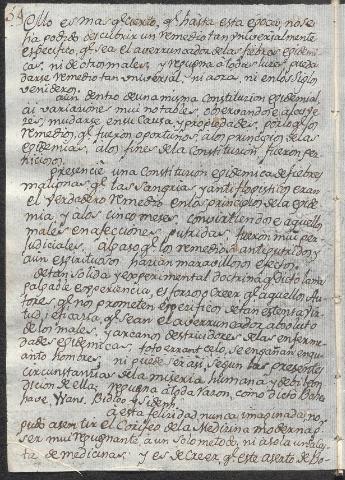 Ello es mas q.e cierto, q.e hasta esta epoca, no se
ha podido descubrir un remedio tan universalmente
especifico, q.e sea el averruncador de las fiebres epidemi-
cas, ni de otro males; y repugna à todas luces pueda
darse remedio tan universal, ni aora, ni en los siglos
venideros.
aun dentro de una misma constitucion epidemial
ai variaciones mui notables, observandose algunas
veces, mudarse en su causa, y propiedades, por lo q.e los
remedios, q.e fueron oportunos à los principios de las
epidemias, à los fines de la constitucion fueron per-
niciosos.
presencie una Constitucion epidemica de fiebres
malignas, q.e las sangrias, y antiflogisticos eran
el verdadero remedio en los principios de la epide-
mia, y à los cinco meses, convirtiendose aquellos
males en afecciones putridas, fueron mui per-
judiciales, al paso q.e los remedios antiputridos, y
aun espirituosos harian maravillosos efectos.
de tan solida y experimental doctrina, q.e dicto la mas
palpable experiencia, es forzoso creer q.e aquellos Au-
tores, q.e nos prometen especificos de tan extensa vir-
tud, i eficacia, q.e sean el averruncador absoluto
de los males, y arcanos destruidores de las enferme-
dades epidemicas, toto errant cœlo, se engañan en qu-
anto hombres, ni puede ser asi, segun las presentes
circunstancias de la miseria humana, y debil con-
dicion de ella; repugna à toda razon, como dicto Boer-
have, Wans,
à esta felicidad, nunca imaginada, no
pudo asentir el Corifeo de la Medicina moderna, p.r
ser mui repugnante, à un solo metodo, ni à sola una
de medicinas, y es de creer, q.e este aserto de Bo-